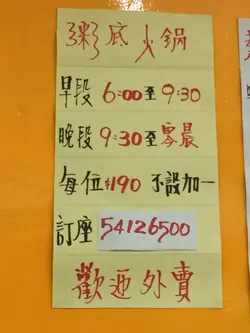 粥底火鍋
早段 6:00至9:30
晚段 9:30至零晨
每位$190 不設加一
訂座 54126500
歡迎外賣